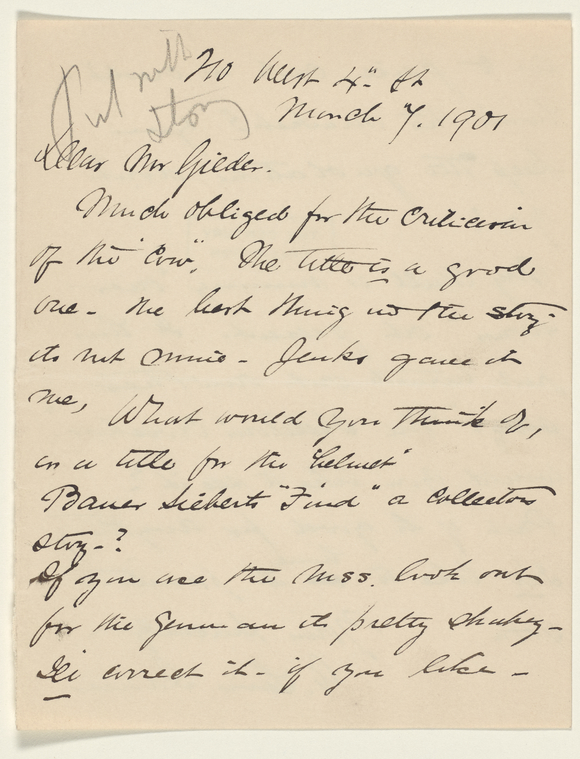 Put with
story
70 West 4th St
March 7. 1901
Dear Mr Gilder.
Much obliged for the criticism
of the "Cow". The title is a good
one - the best thing in the story -
its not mine - Jenks gave it
me, What would you think of,
as a title for the "Helmet"
Bauer Sieberts "Find" a Collectors
story - ?
If you use the Mss. look out
for the German its pretty shakey -
correct it - if you like -